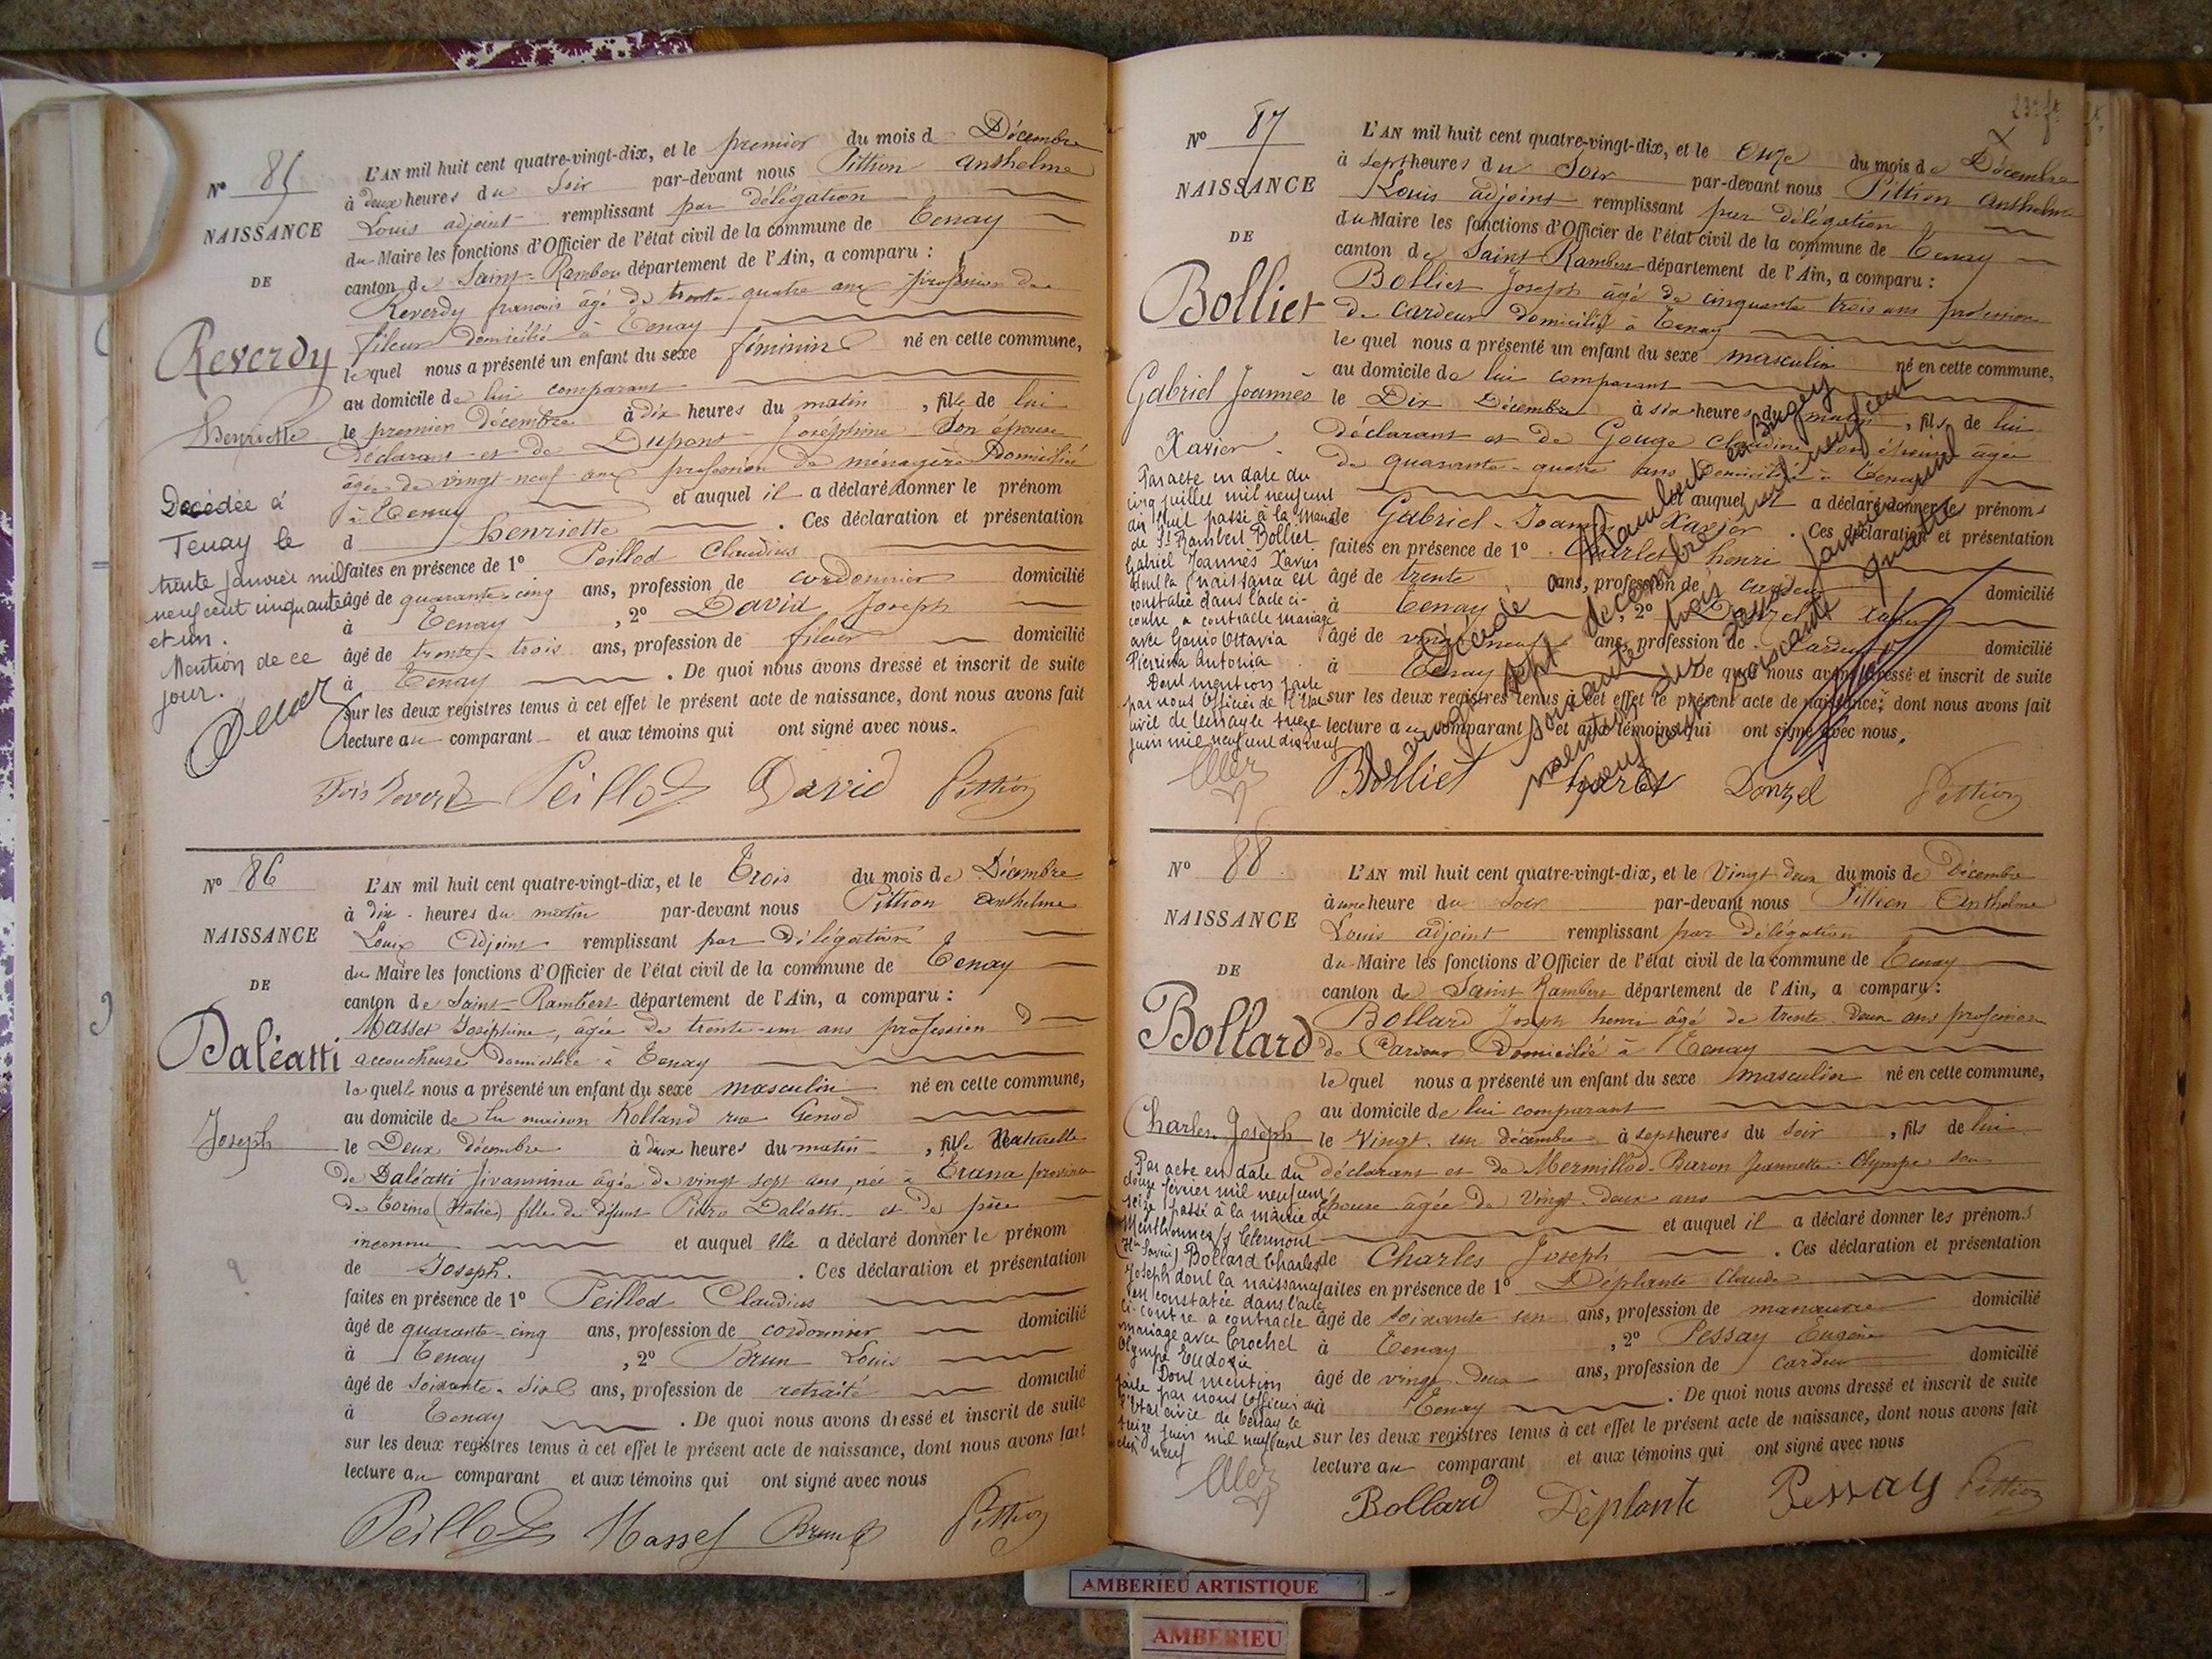 Nº 85
NAISSANCE
DE
Reverdy
Henriette
Decédée à
Tenay le
trente janvier mil
neuf cent cinquante
et un.
Mention de ce
jour.
L'AN mil huit cent quatre-vingt-dix, et le premier du mois d Décembre
à deux heures du Soir par-devant nous Pittion Anthelme
Louis adjoint remplissant par délégation
du Maire les fonctions d'Officier de l'état civil de la commune de Tenay
canton de Saint-Rambert département de l'Ain, a comparu :
Reverdy françois âgé de trente quatre ans profession de
fileur domicilié à Tenay
lequel nous a présenté un enfant du sexe féminin né en cette commune,
au domicile de lui comparant
le premier décembre à dix heures du matin, fille de lui
déclarant et de Dupont Joséphine son épouse
âgée de vingt-neuf ans profession de ménagère Domicilié
à Tenay et auquel il a déclaré donner le prénom
d Henriette . Ces déclaration et présentation
faites en présence de 1º Peillod Claudius
âgé de quarante-cinq ans, profession de cordonnier domicilié
à Tenay , 2º David Joseph
âgé de trente-trois ans, profession de fileur domicilié
à Tenay . De quoi nous avons dressé et inscrit de suite
sur les deux registres tenus à cet effet le présent acte de naissance, dont nous avons fait
lecture au comparant et aux témoins qui ont signé avec nous.
Peillod David Pittion
Nº 86
NAISSANCE
DE
Daléatti
Joseph
L'AN mil huit cent quatre-vingt-dix, et le Trois du mois de Décembre
à dix heures du matin par-devant nous Pittion Anthelme
Louis Adjoint remplissant par Délégation
du Maire les fonctions d'Officier de l'état civil de la commune de Tenay
canton de Saint-Rambert département de l'Ain, a comparu :
Masset Joséphine, âgée de trente-un ans profession d
accoucheuse domiciliée à Tenay
laquelle nous a présenté un enfant du sexe masculin né en cette commune,
au domicile de la maison Rolland rue Genod
le Deux décembre à deux heures du matin, fils Naturelle
de Daléatti Jivannina âgée de vingt sept ans née à Trana province
de Torino (Italie) fille de défunt Pietro Daléatti et de père
inconnu et auquel elle a déclaré donner le prénom
de Joseph. . Ces déclaration et présentation
faites en présence de 1º Peillod Claudius
âgé de quarante-cinq ans, profession de cordonnier domicilié
à Tenay , 2º Brun Louis
âgé de soixante-six ans, profession de retraité domicilié
à Tenay . De quoi nous avons dressé et inscrit de suite
sur les deux registres tenus à cet effet le présent acte de naissance, dont nous avons fait
lecture au comparant et aux témoins qui ont signé avec nous
Peillod Masset Brun Pittion
Nº 87
NAISSANCE
DE
Bolliet
Gabriel Joannès
Xavier
Par acte en date du
cinq juillet mil neuf cent
dix huit passé à la Mairie
de St Rambert Bolliet
Gabriel Joannès Xavier
dont la naissance est
constatée dans l'acte ci-
contre, a contracté mariage
avec Ottavia
Pierrina Antonia
Dont mention faite
par nous Officier de l'Etat
civil de Tenay le treize
juin mil neuf cent dix neuf
L'AN mil huit cent quatre-vingt-dix, et le Onze du mois de Décembre
à sept heures du Soir par-devant nous Pittion Anthelme
Louis adjoint remplissant par délégation
du Maire les fonctions d'Officier de l'état civil de la commune de Tenay
canton de Saint Rambert département de l'Ain, a comparu :
Bolliet Joseph âgé de cinquante trois ans profession
de cardeur domicilié à Tenay
lequel nous a présenté un enfant du sexe masculin né en cette commune,
au domicile de lui comparant
le Dix Décembre à six heures du matin, fils de lui
déclarant et de Gouge Claudine son épouse âgée
de quarante-quatre ans Domiciliée à Tenay
et auquel il a déclaré donner les prénoms
de Gabriel-Joannès Xavier . Ces déclaration et présentation
faites en présence de 1º Charles henri
âgé de trente ans, profession de cardeur domicilié
à Tenay , 2º Donzel Xavier
âgé de vingt neuf ans, profession de Cardeur domicilié
à Tenay De quoi nous avons dressé et inscrit de suite
sur les deux registres tenus à cet effet le présent acte de naissance, dont nous avons fait
lecture au comparant et aux témoins qui ont signé avec nous.
Décédé à St Rambert en Bugey
le vingt sept décembre mil neuf cent
soixante trois
mention du deux janvier mil
neuf cent soixante quatre
Bolliet Donzel Pittion
Nº 88
NAISSANCE
DE
Bollard
Charles Joseph
Par acte en date du
douze février mil neuf cent
seize passé à la mairie de
Menthonnex s/ Clermont
(Hte Savoie) Bollard Charles
Joseph dont la naissance
est constatée dans l'acte
ci-contre a contracté
mariage avec Crochet
Olympe Eudoxie
Dont mention
faite par nous Officier de
l'Etat civil de Tenay le
treize juin mil neuf cent
dix neuf
L'AN mil huit cent quatre-vingt-dix, et le Vingt deux du mois de Décembre
à une heure du Soir par-devant nous Pittion Anthelme
Louis adjoint remplissant par Délégation
du Maire les fonctions d'Officier de l'état civil de la commune de Tenay
canton de Saint Rambert département de l'Ain, a comparu :
Bollard Joseph henri âgé de trente-deux ans profession
de Cardeur Domicilié à Tenay
lequel nous a présenté un enfant du sexe masculin né en cette commune,
au domicile de lui comparant
le Vingt-un décembre à sept heures du Soir, fils de lui
déclarant et de Mermillod-Baron Jeannette-Olympe son
épouse âgée de Vingt-deux ans
et auquel il a déclaré donner les prénoms
de Charles Joseph . Ces déclaration et présentation
faites en présence de 1º Déplante Claude
âgé de soixante un ans, profession de manœuvre domicilié
à Tenay , 2º Pessay Eugène
âgé de vingt-deux ans, profession de cardeur domicilié
à Tenay . De quoi nous avons dressé et inscrit de suite
sur les deux registres tenus à cet effet le présent acte de naissance, dont nous avons fait
lecture au comparant et aux témoins qui ont signé avec nous
Bollard Déplante Pessay Pittion
AMBERIEU ARTISTIQUE
AMBERIEU